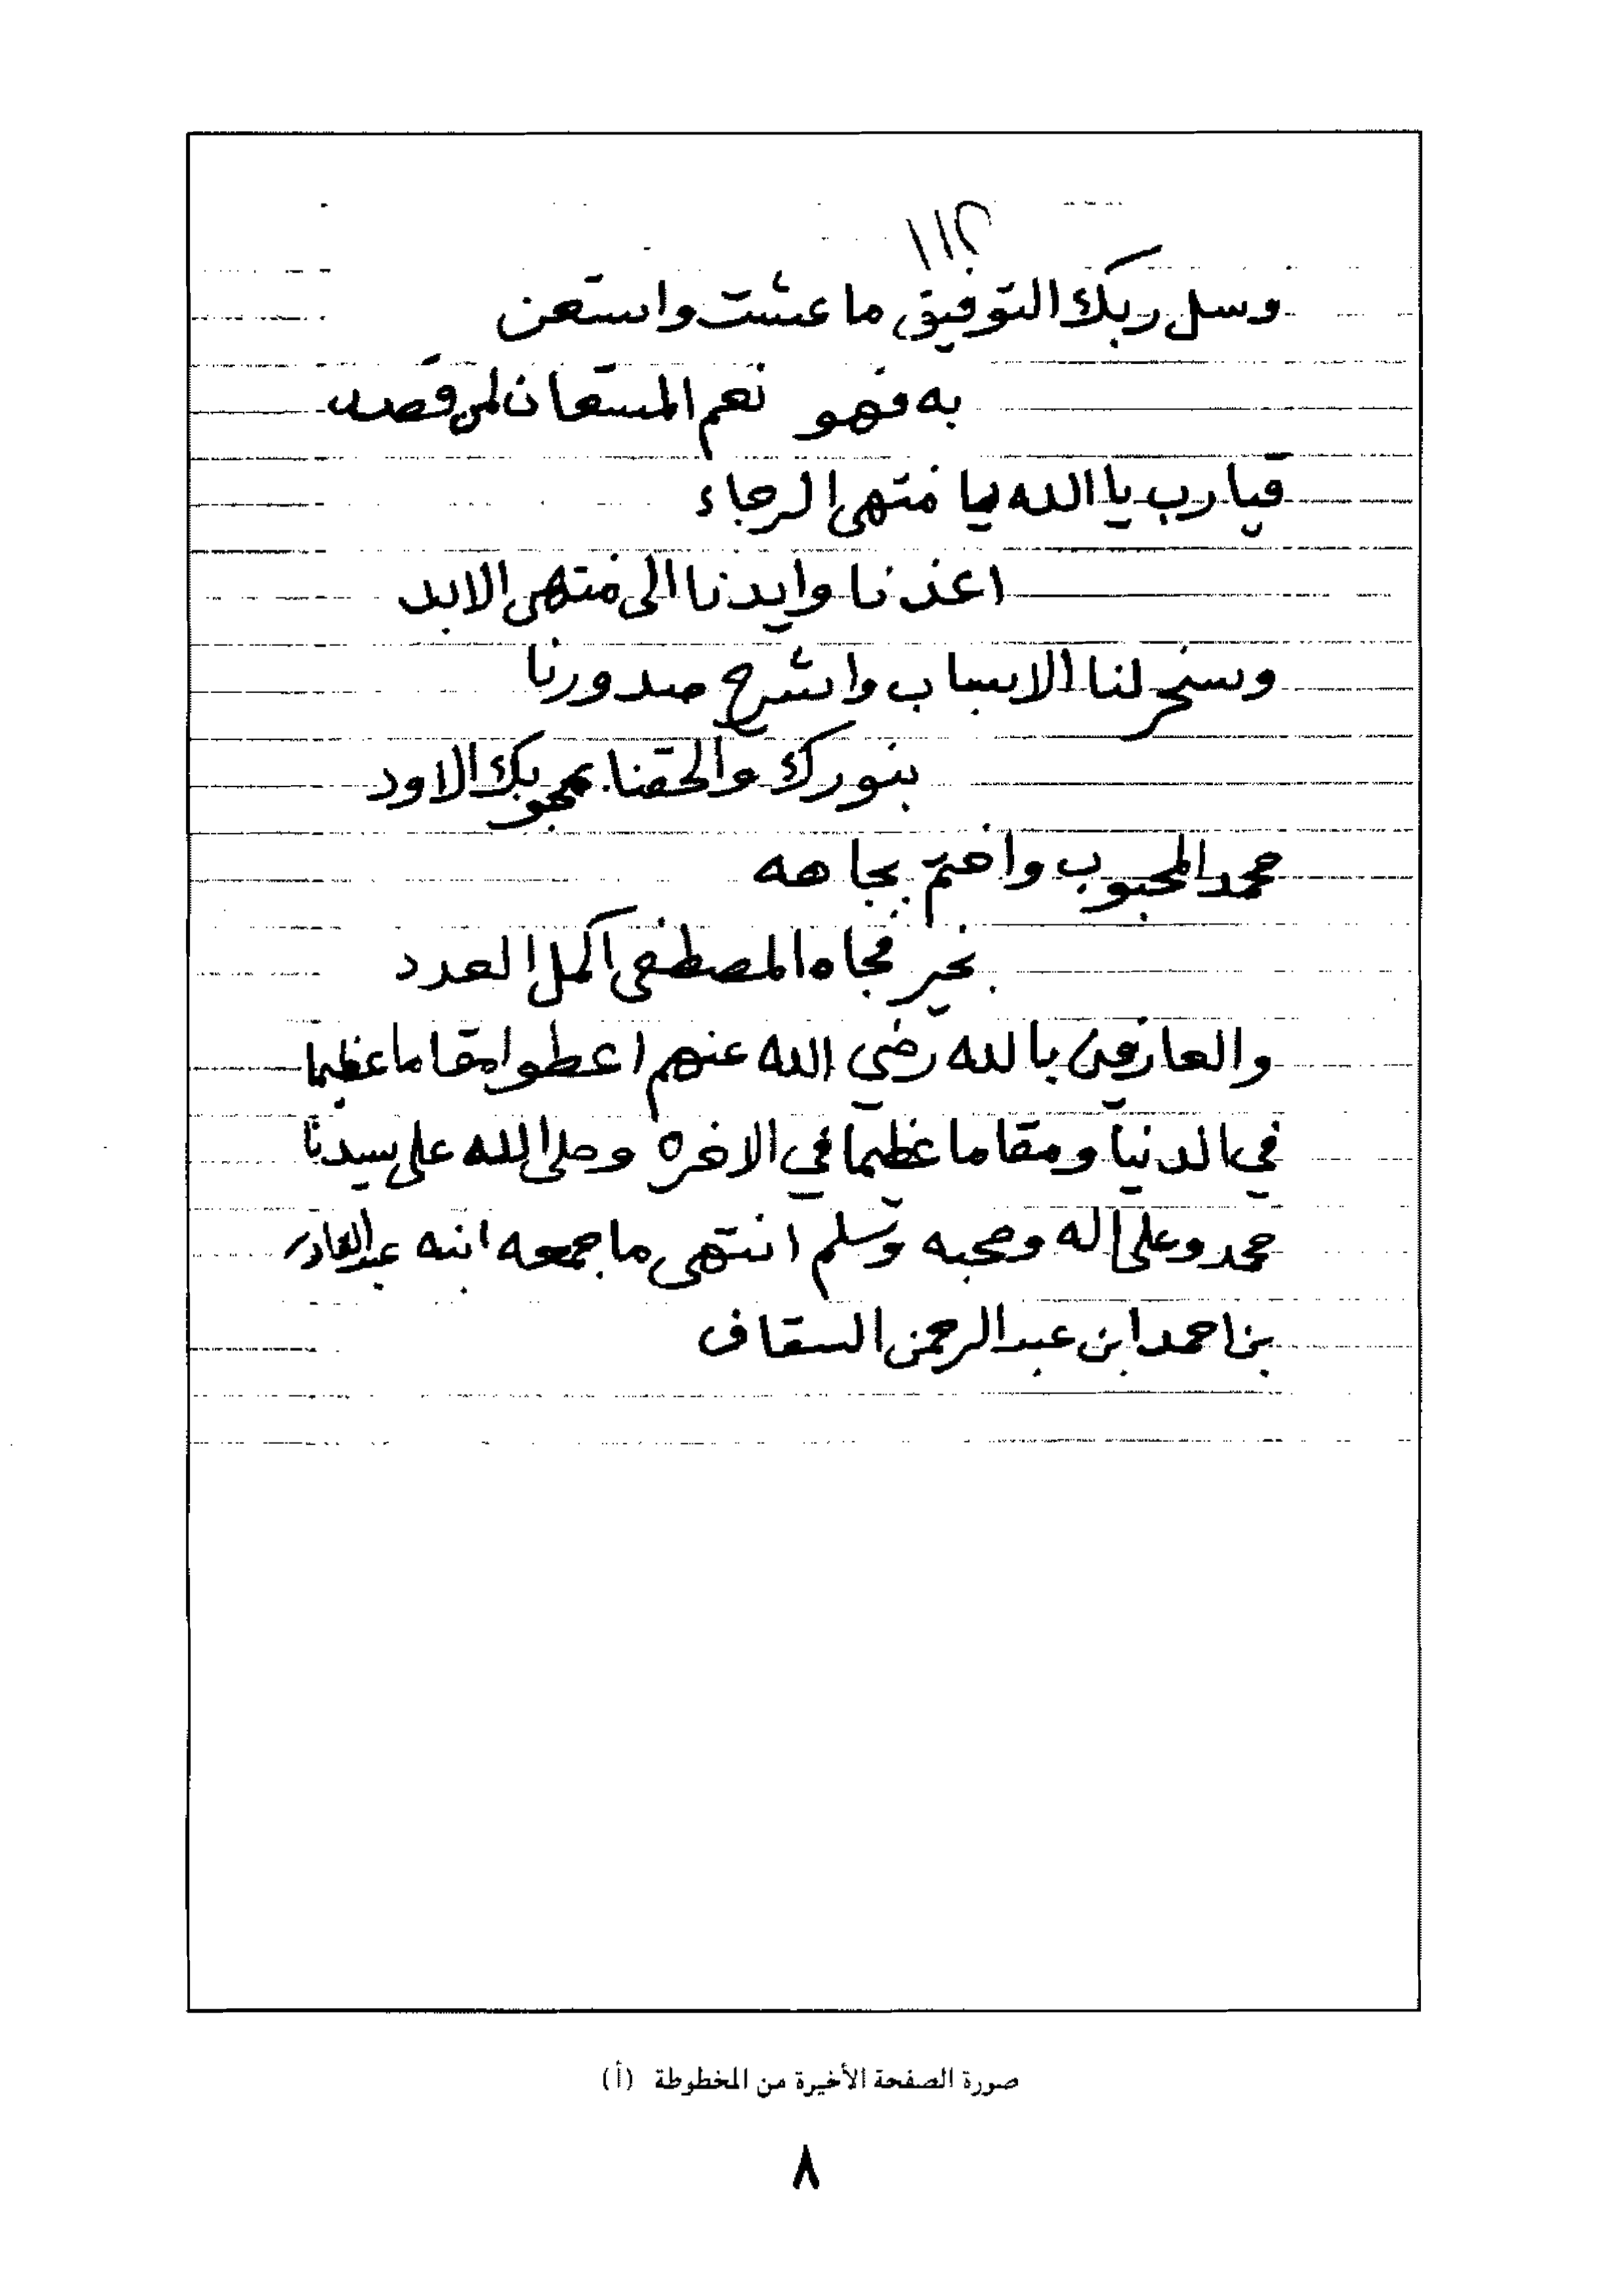 ١١٢
وسل ربك التوفيق ما عشت واستعن
به فهو نعم المستعان لمن قصد
فيا رب يا الله يا منتهى الرجاء
اعذنا وايدنا الى منتهى الابد
وسخر لنا الاسباب واشرح صدورنا
بنورك والحقنا بمحبوبك الاود
محمد المحبوب واختم بجاهه
بخير فجاه المصطفى اكمل العدد
والعارفين بالله رضي الله عنهم اعطوا مقاما عظيما
في الدنيا ومقاما عظيما في الاخره وصلى الله على سيدنا
محمد وعلى اله وصحبه وسلم انتهى ما جمعه ابنه عبدالقادر
بن احمد ابن عبد الرحمن السقاف
صورة الصفحة الأخيرة من المخطوطة (أ)
٨